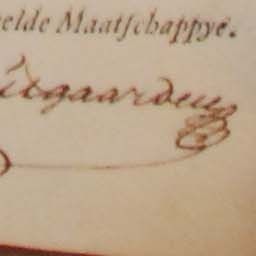 elde Maatſchappyé.
itgaarden